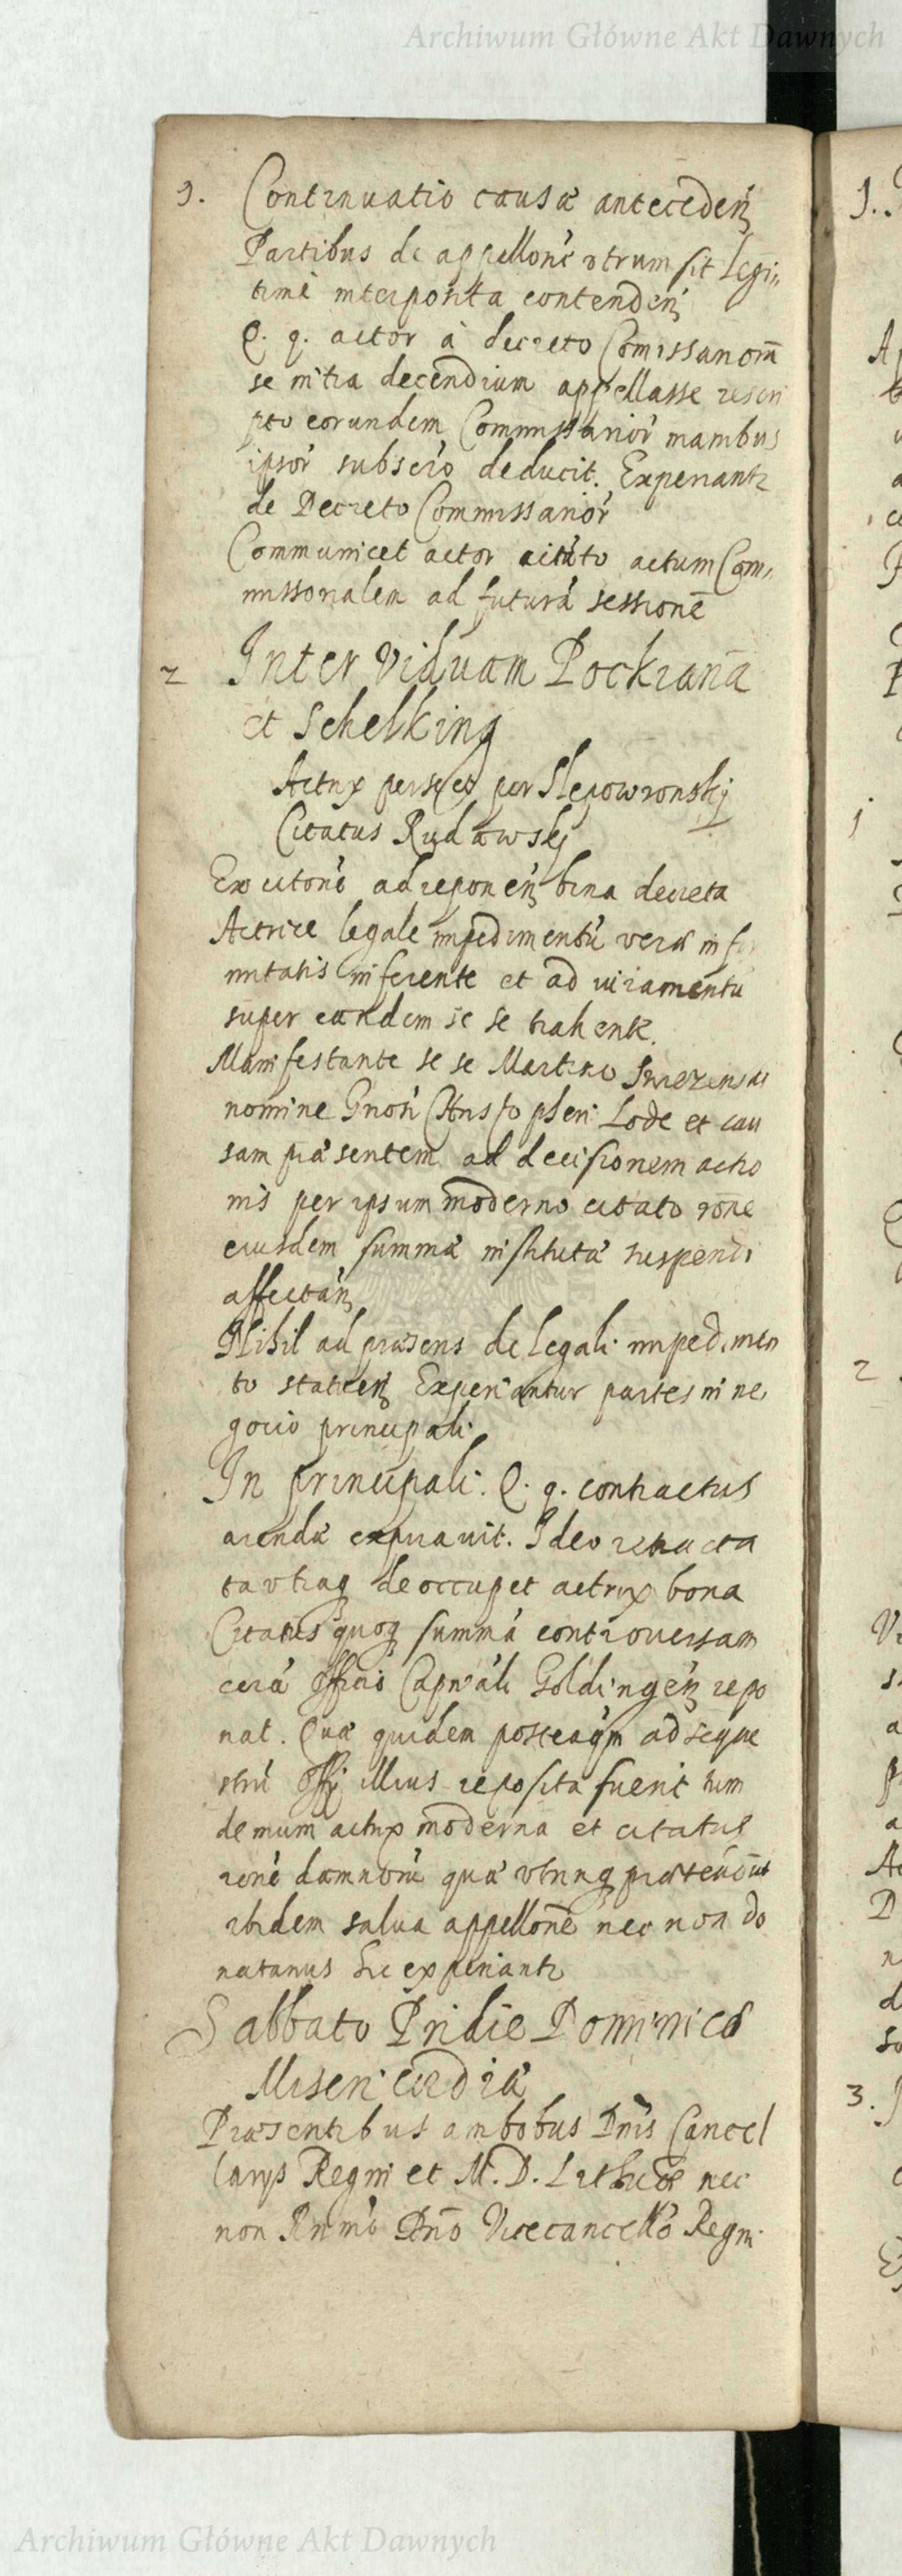 Archiwum Główne Akt Dawnych
1. Continuatio causæ anteceden̄
Partibus de appellone̅ vtrum sit Legi„
time interposita contenden̄
Q. q. actor à decreto Comissariom̅
se intra decendium appellasse rescri
pto eorundem Commissarior̅ manibus
ipsor̅ subscro̅ deducit. Experiantr
de Decreto Commissarior̅
Communicet actor citato actum Com„
missorialem ad futura̅ sessione̅
2 Inter Viduam Pockiana̅
et Schelking
Actrix per se et per Slepowronskj
Citatus Rudawskj
Ex citone̅ ad reponen̄ bina decreta
Actrice legale impedimentu̅ veræ infir
mitatis inferente et ad iuramentu̅
super eandem se se trahente.
Manifestante se se Martino
nomine Gnosi Christopheri Lode et cau
sam præsentem ad decisionem actio
nis per ipsum moderno citato rone̅
eiusdem summæ institutæ suspendi
affectan̄
Nihil ad præsens de legali impedimen
to statuen̄ Experiantur partes in ne„
gocio principali.
In principali. Q. q. contractus
arendæ expirauit. Ideo
deoccupet actrix bona
Citatus quoq summa̅ controuersam
cora̅ Officio Capn̅ali Goldingen̄ repo
nat. Quæ quidem posteaqm̅ ad seque
stru̅ Offj illius reposita fuerit tum
demum actrix moderna et citatus
rone̅ damnoru̅ quæ vtrinq prætendūt
ibidem salua appellone̅ nec non do
natarius hic experiantr
Sabbato Pridie Dominicæ
Misericordiæ
Præsentibus ambobus Dn̅is Cancel
larys Regni et M. D. Lithuæ nec
non Rn̅mo Dn̅o Vicecancello̅ Regni
Archiwum Główne Akt Dawnych